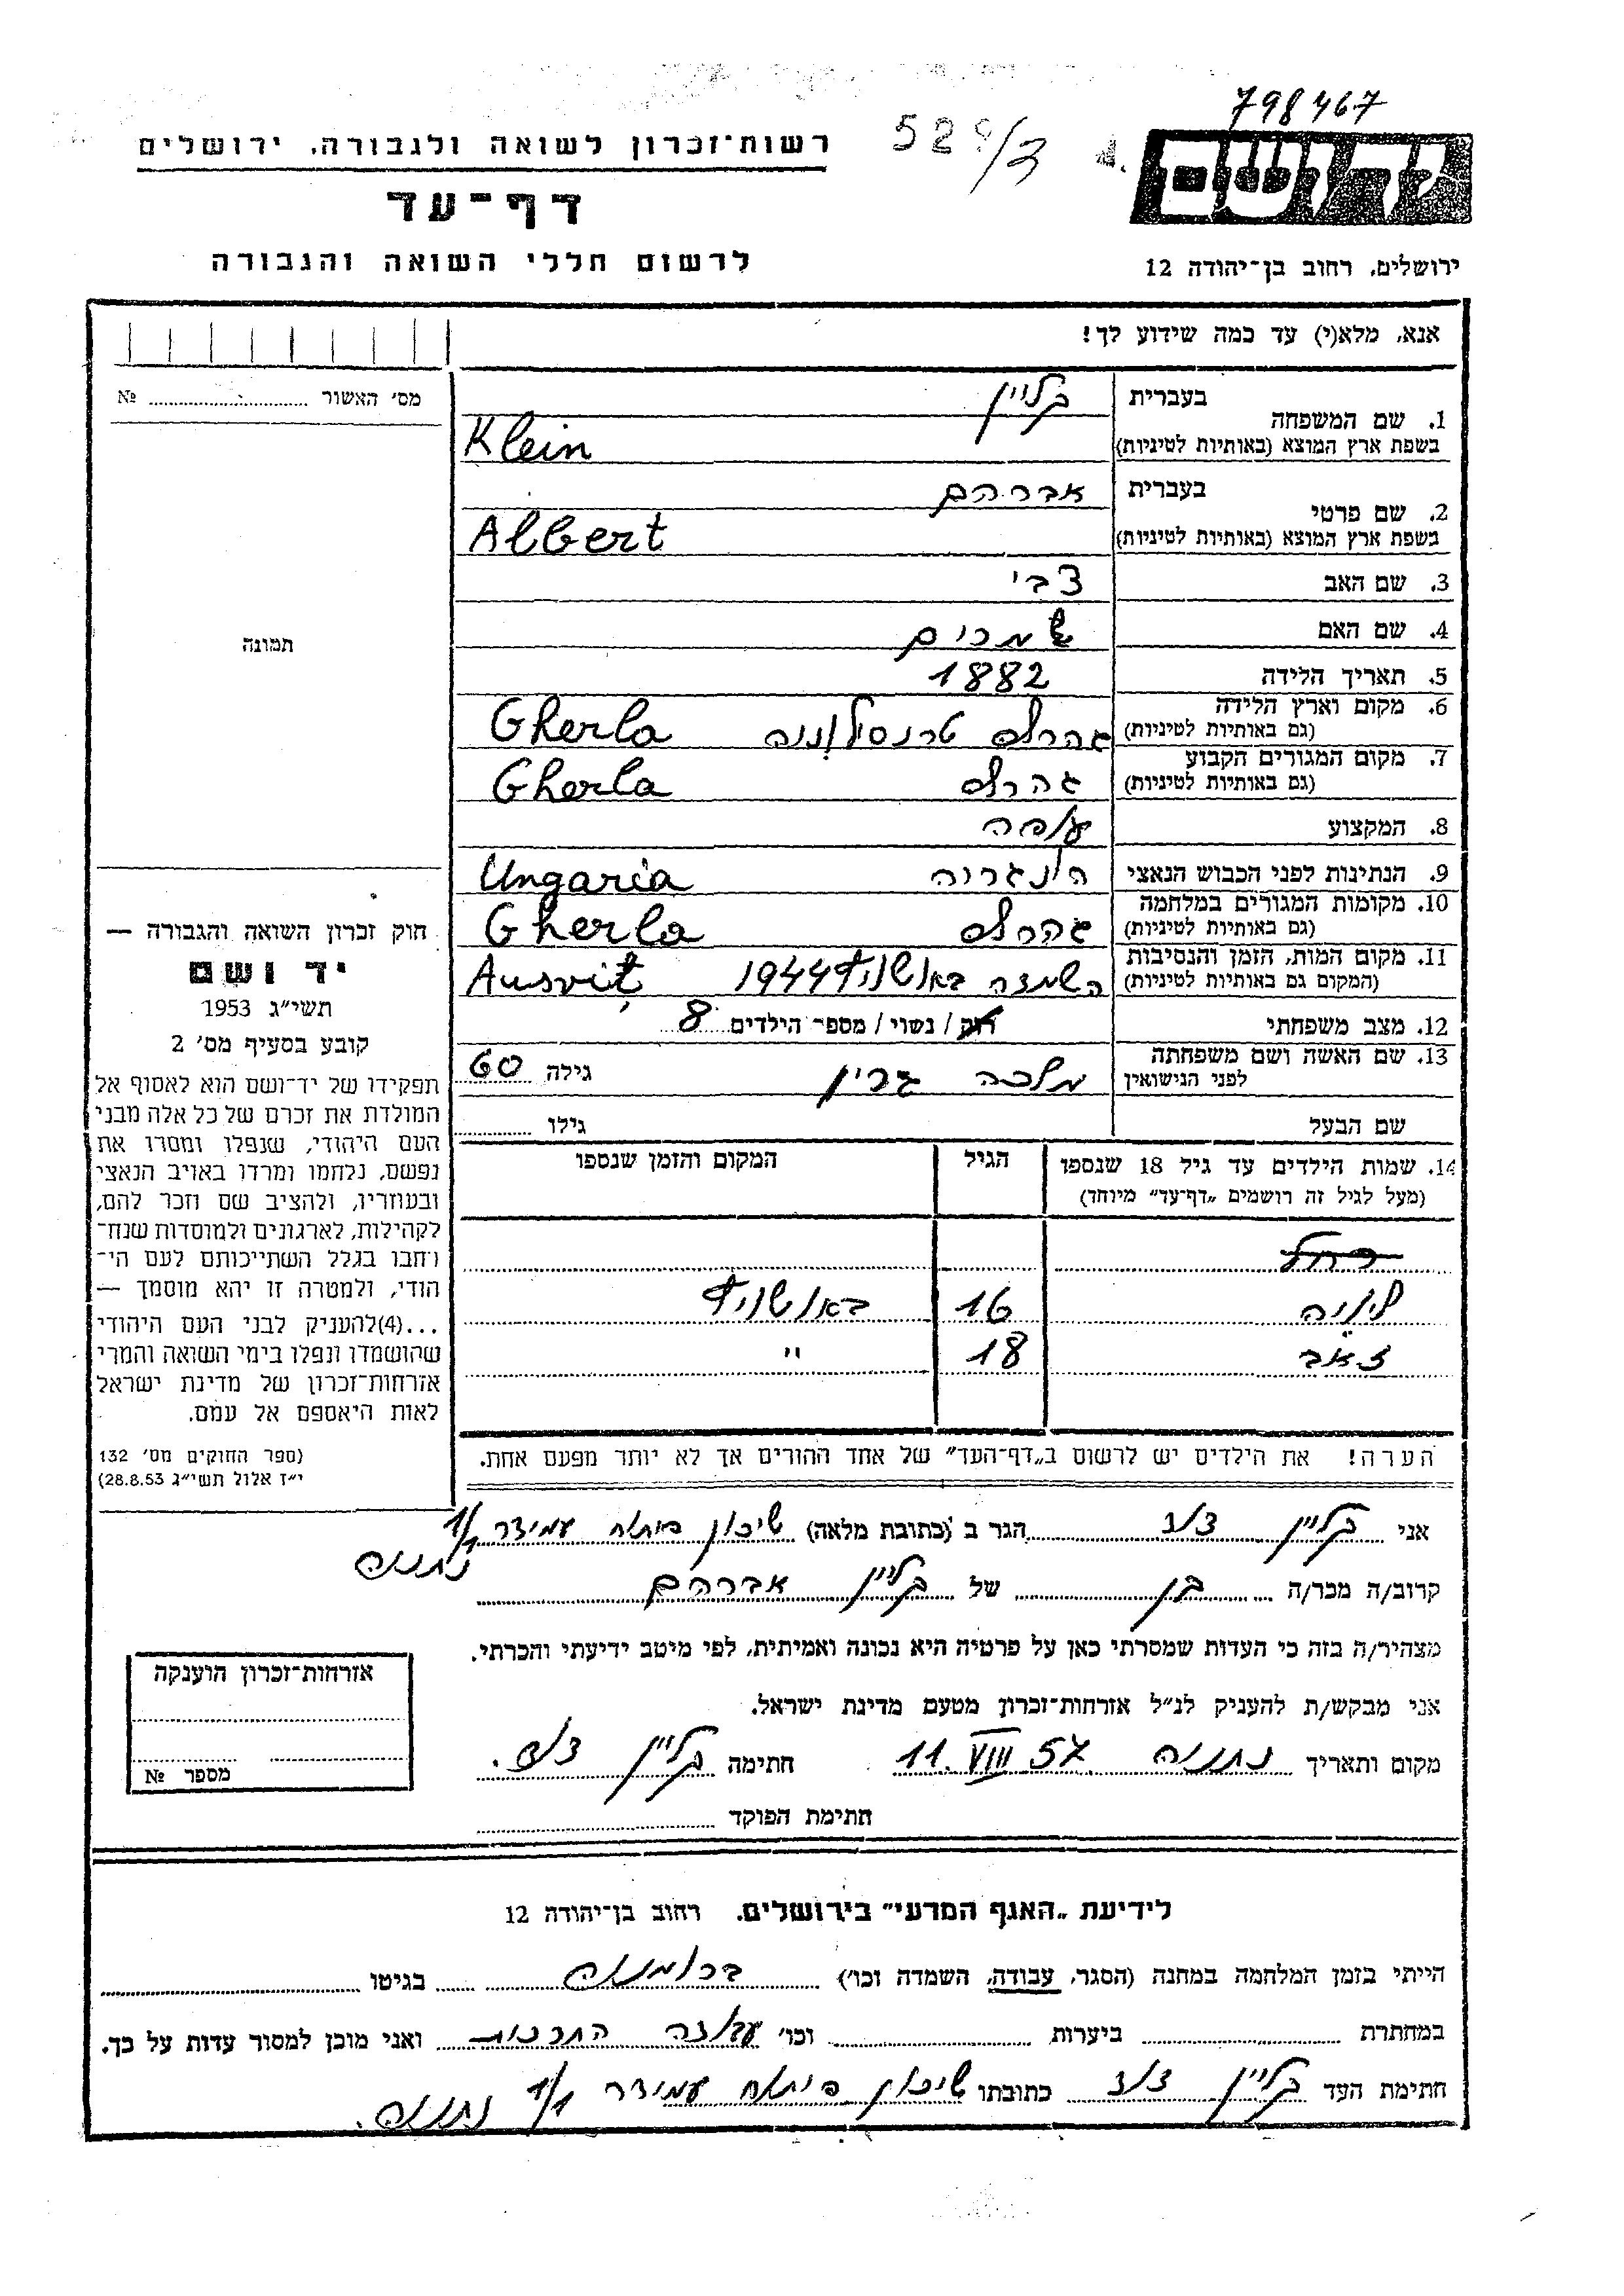 798467
רשות־זכרון לשואה ולגבורה, ירושלים
דף־עד
לרשום חללי השואה והגבורה
ירושלים, רחוב בן־יהודה 12
אנא, מלא(י) עד כמה שידוע לך!
מס׳ האשור №
תמונה
1. שם המשפחה
בעברית קליין
בשפת ארץ המוצא (באותיות לטיניות) Klein
2. שם פרטי
בעברית אברהם
בשפת ארץ המוצא (באותיות לטיניות) Albert
3. שם האב צבי
4. שם האם
5. תאריך הלידה 1882
6. מקום וארץ הלידה (גם באותיות לטיניות) Gherla
7. מקום המגורים הקבוע (גם באותיות לטיניות) גהרלה Gherla
8. המקצוע
9. הנתינות לפני הכבוש הנאצי הונגריה Ungaria
10. מקומות המגורים במלחמה (גם באותיות לטיניות) גהרלה Gherla
11. מקום המות, הזמן והנסיבות (המקום גם באותיות לטיניות) השמדה באושויץ 1944 Ausviţ
12. מצב משפחתי רוק / נשוי / מספר הילדים 8
13. שם האשה ושם משפחתה לפני הנישואין מלכה גרין גילה 60
שם הבעל גילו
14. שמות הילדים עד גיל 18 שנספו הגיל המקום והזמן שנספו
(מעל לגיל זה רושמים „דף־עד״ מיוחד)
רחל
16 באושויץ
זאב 18 "
הערה! את הילדים יש לרשום ב„דף־העד״ של אחד ההורים אך לא יותר מפעם אחת.
חוק זכרון השואה והגבורה —
יד ושם
תשי״ג 1953
קובע בסעיף מס׳ 2
תפקידו של יד־ושם הוא לאסוף אל
המולדת את זכרם של כל אלה מבני
העם היהודי, שנפלו ומסרו את
נפשם, נלחמו ומרדו באויב הנאצי
ובעוזריו, ולהציב שם וזכר להם,
לקהילות, לארגונים ולמוסדות שנח־
רחבו בגלל השתייכותם לעם הי־
הודי, ולמטרה זו יהא מוסמך —
...(4)להעניק לבני העם היהודי
שהושמדו ונפלו בימי השואה והמרי
אזרחות־זכרון של מדינת ישראל
לאות היאספם אל עמם.
(ספר החוקים מס׳ 132
י״ז אלול תשי״ג 28.8.53)
אני קליין הגר ב (כתובת מלאה) שיכון עמידר 1/1
נתניה
קרוב/ה מכר/ה בן של קליין אברהם
מצהיר/ה בזה כי העדות שמסרתי כאן על פרטיה היא נכונה ואמיתית, לפי מיטב ידיעתי והכרתי.
אני מבקש/ת להעניק לנ״ל אזרחות־זכרון מטעם מדינת ישראל.
מקום ותאריך נתניה 11. VIII 57 חתימה קליין
חתימת הפוקד
אזרחות־זכרון הוענקה
מספר №
לידיעת „האגף המדעי״ בירושלים, רחוב בן־יהודה 12
הייתי בזמן המלחמה במחנה (הסגר, עבודה, השמדה וכו׳) ברומניה בגיטו
במחתרת ביערות וכו׳ ואני מוכן למסור עדות על כך.
חתימת העד קליין כתובתו שיכון עמידר 1/1 נתניה.